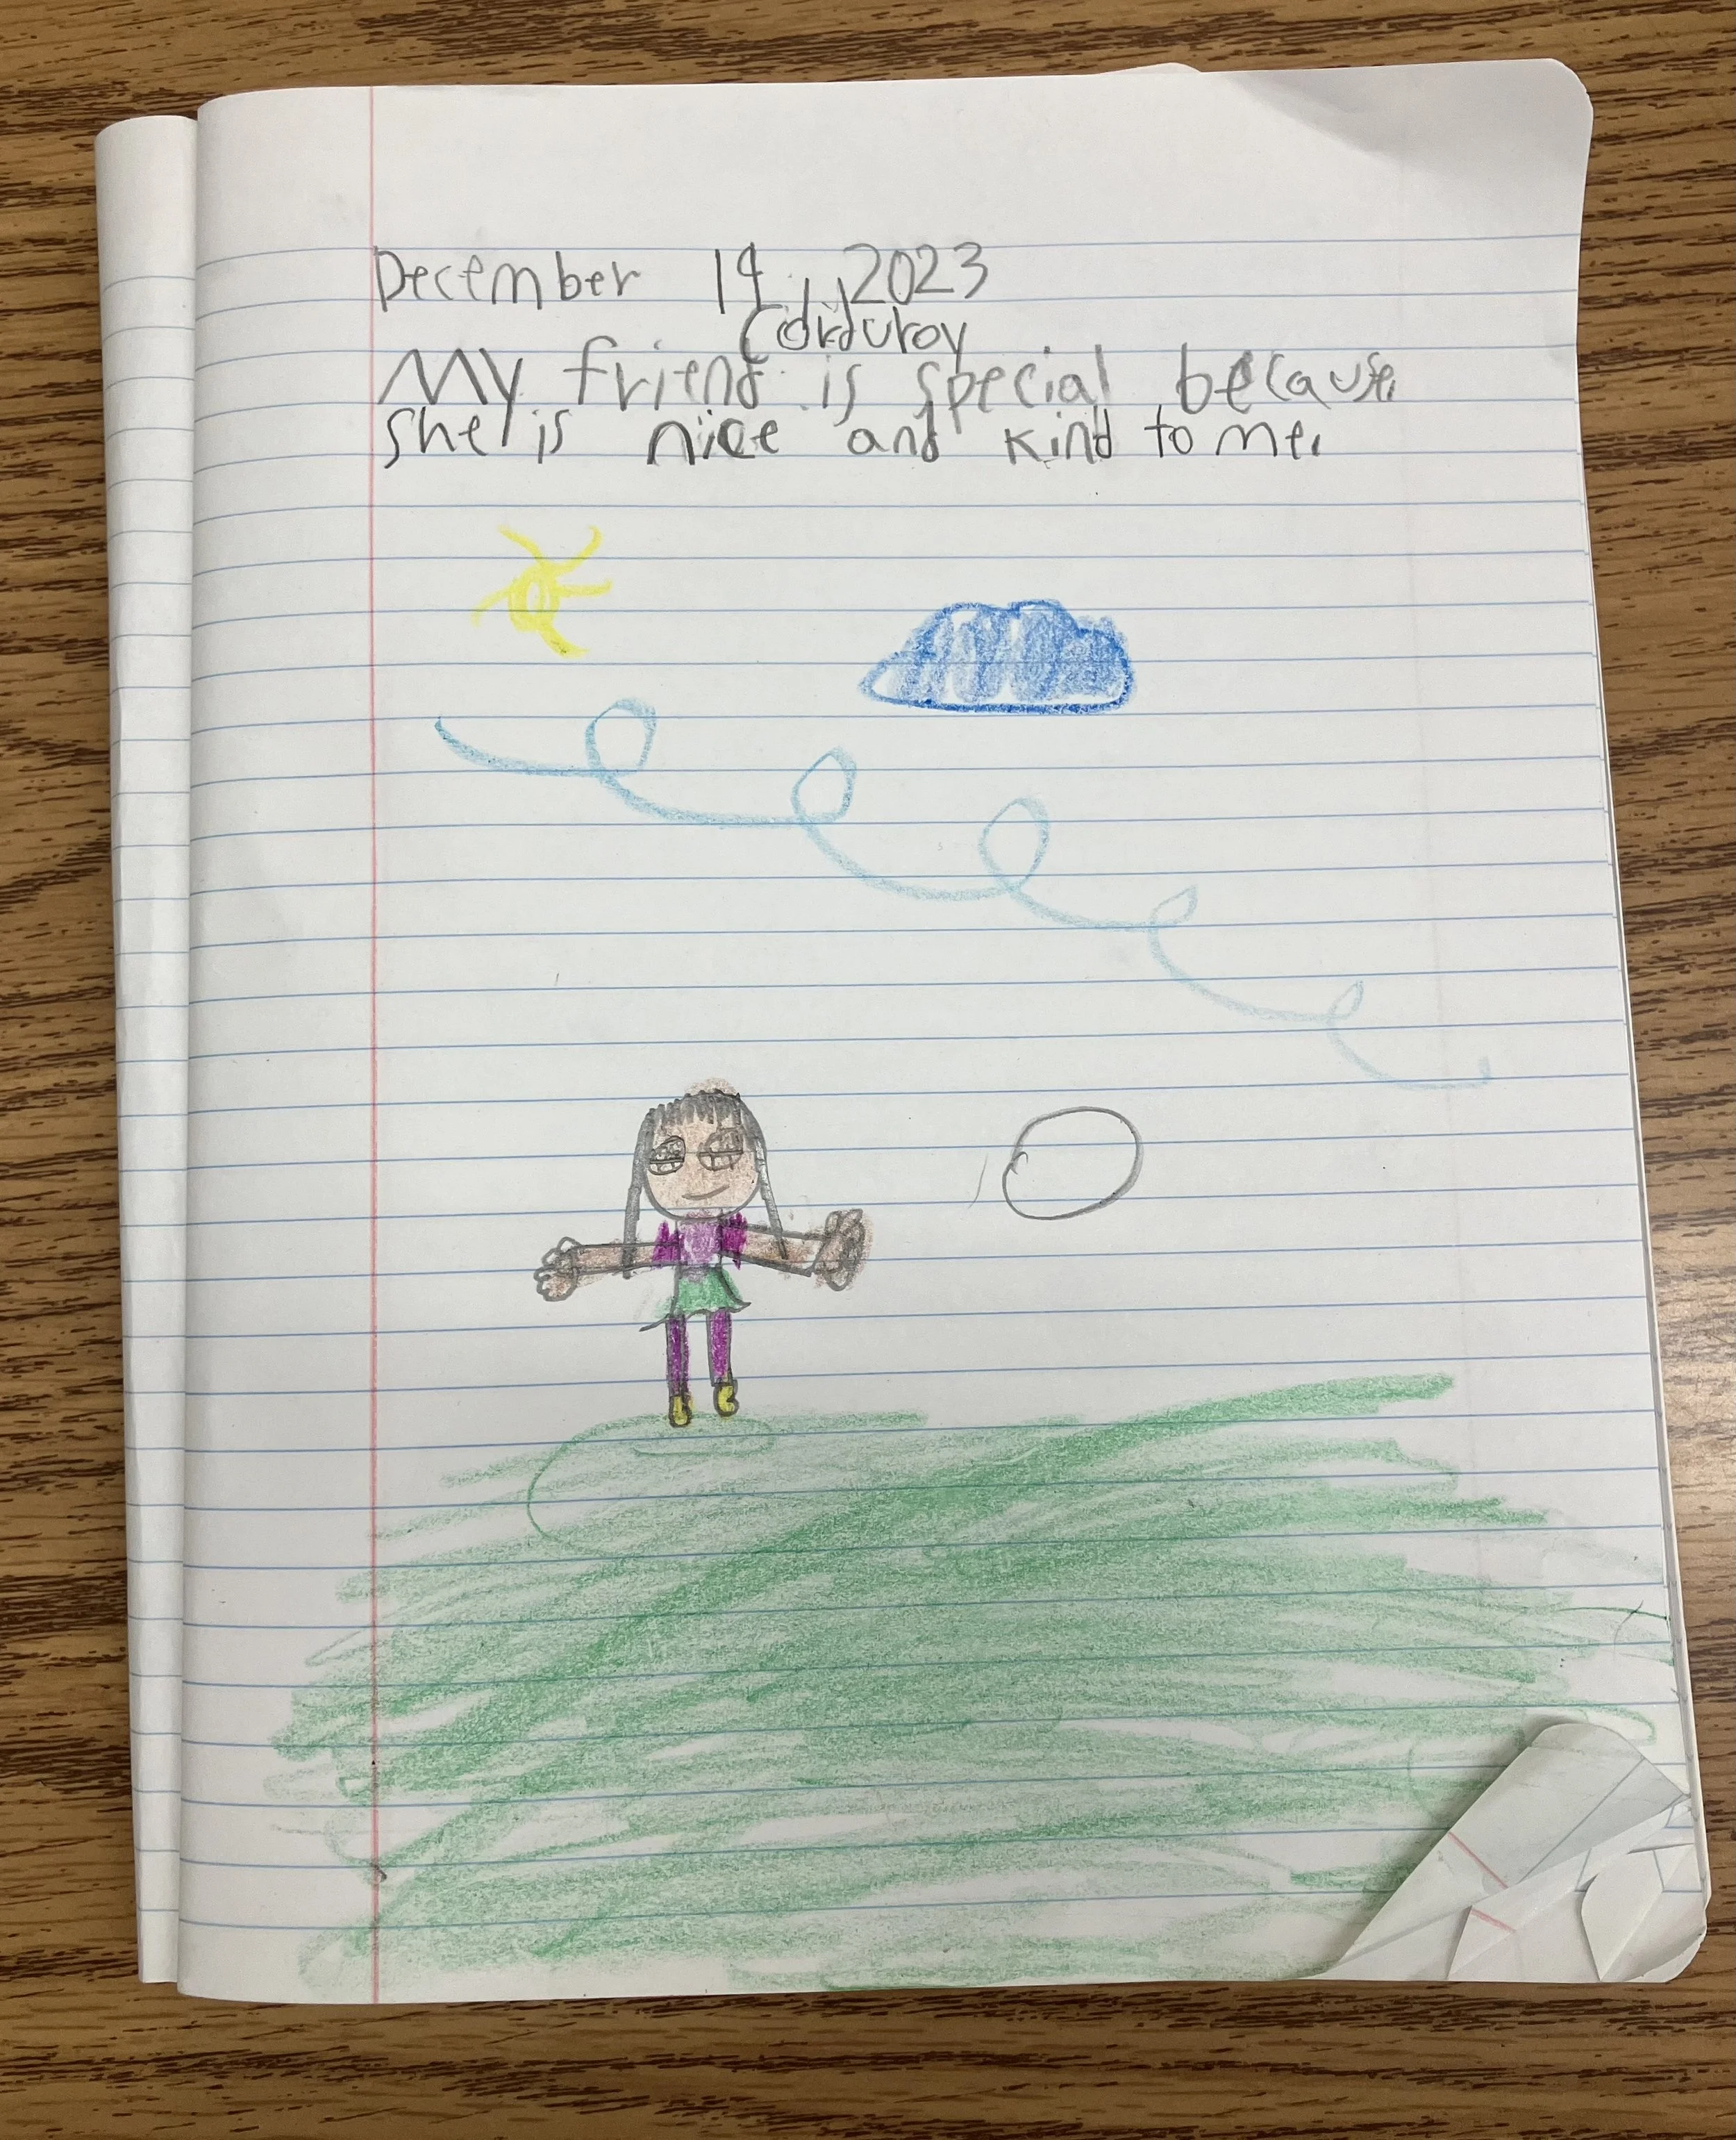 December 14, 2023
Corduroy
My friend is special because
she is nice and kind to me.